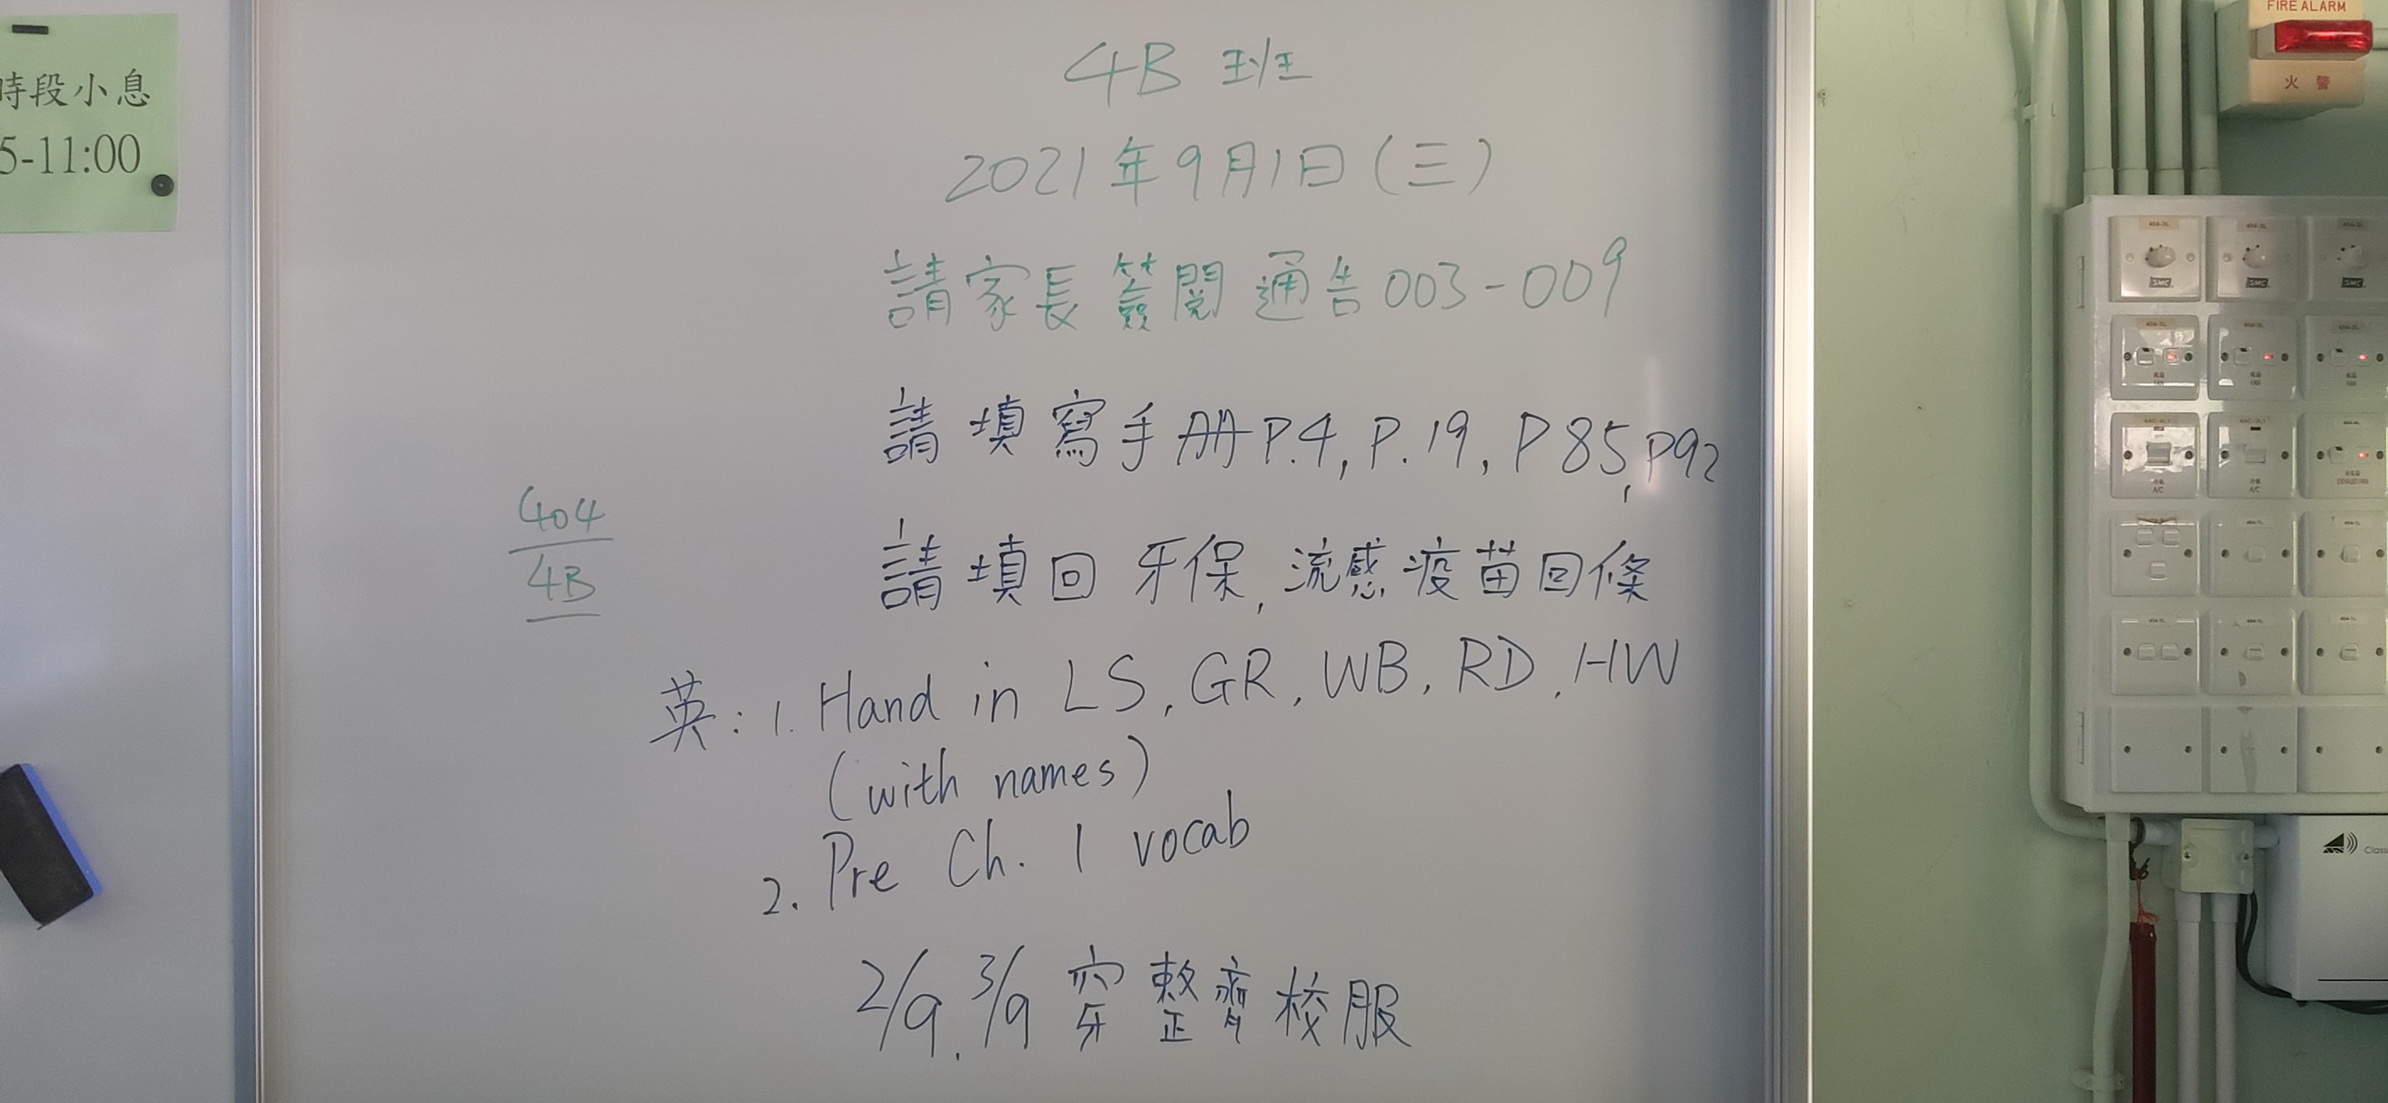 時段小息
5-11:00
4B 班
2021年9月1日(三)
請家長簽閱通告003-009
請填寫手册P.4, P.19, P85, P92
404
4B
請填回牙保, 流感疫苗回條
英: 1. Hand in LS, GR, WB, RD, HW
(with names)
2. Pre Ch. 1 vocab
2/9, 3/9 穿整齊校服
FIRE ALARM
火警